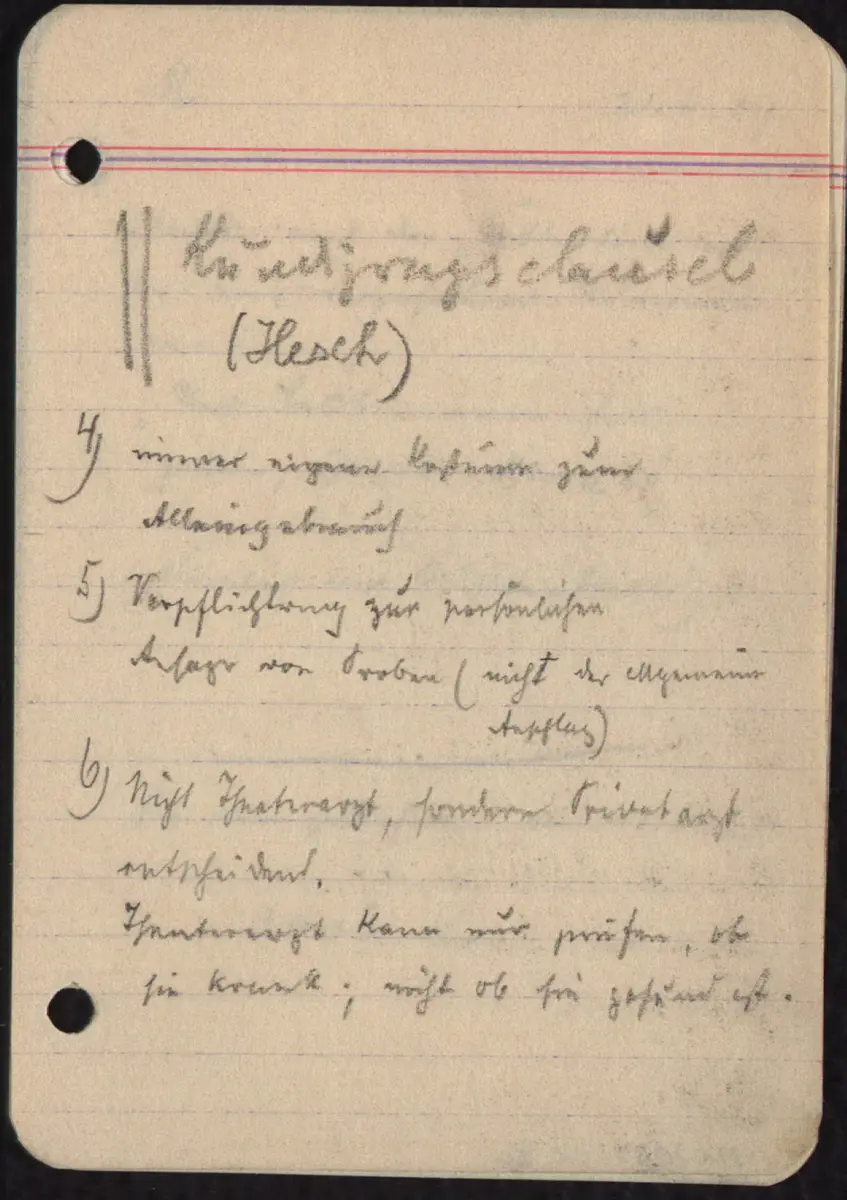 Kündigungsclausel
(Hesch)
4) immer eigene Kostüme zum
Alleingebrauch
5) Verpflichtung zur persönlichen
Ansage von Proben (nicht der allgemeine
Anschlag)
6) Nicht Theaterarzt, sondern Privatarzt
entscheidend.
Theaterarzt kann nur prüfen, ob
sie krank; nicht ob sie gesund ist.